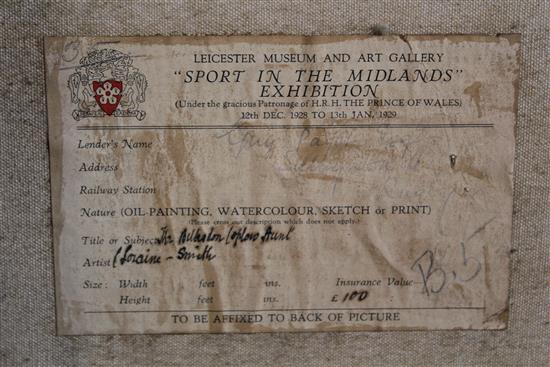 3
LEICESTER MUSEUM AND ART GALLERY
"SPORT IN THE MIDLANDS"
EXHIBITION
(Under the gracious Patronage of H.R.H. THE PRINCE OF WALES)
12th DEC. 1928 TO 13th JAN, 1929
Lender's Name Guy
Address
Railway Station
Nature (OIL-PAINTING, WATERCOLOUR, SKETCH or PRINT)
(Please cross out description which does not apply.)
Title or Subject The Billesdon Coplow Hunt
Artist Loraine - Smith
Size: Width feet ins. Insurance Value B.5
Height feet ins. £100
TO BE AFFIXED TO BACK OF PICTURE